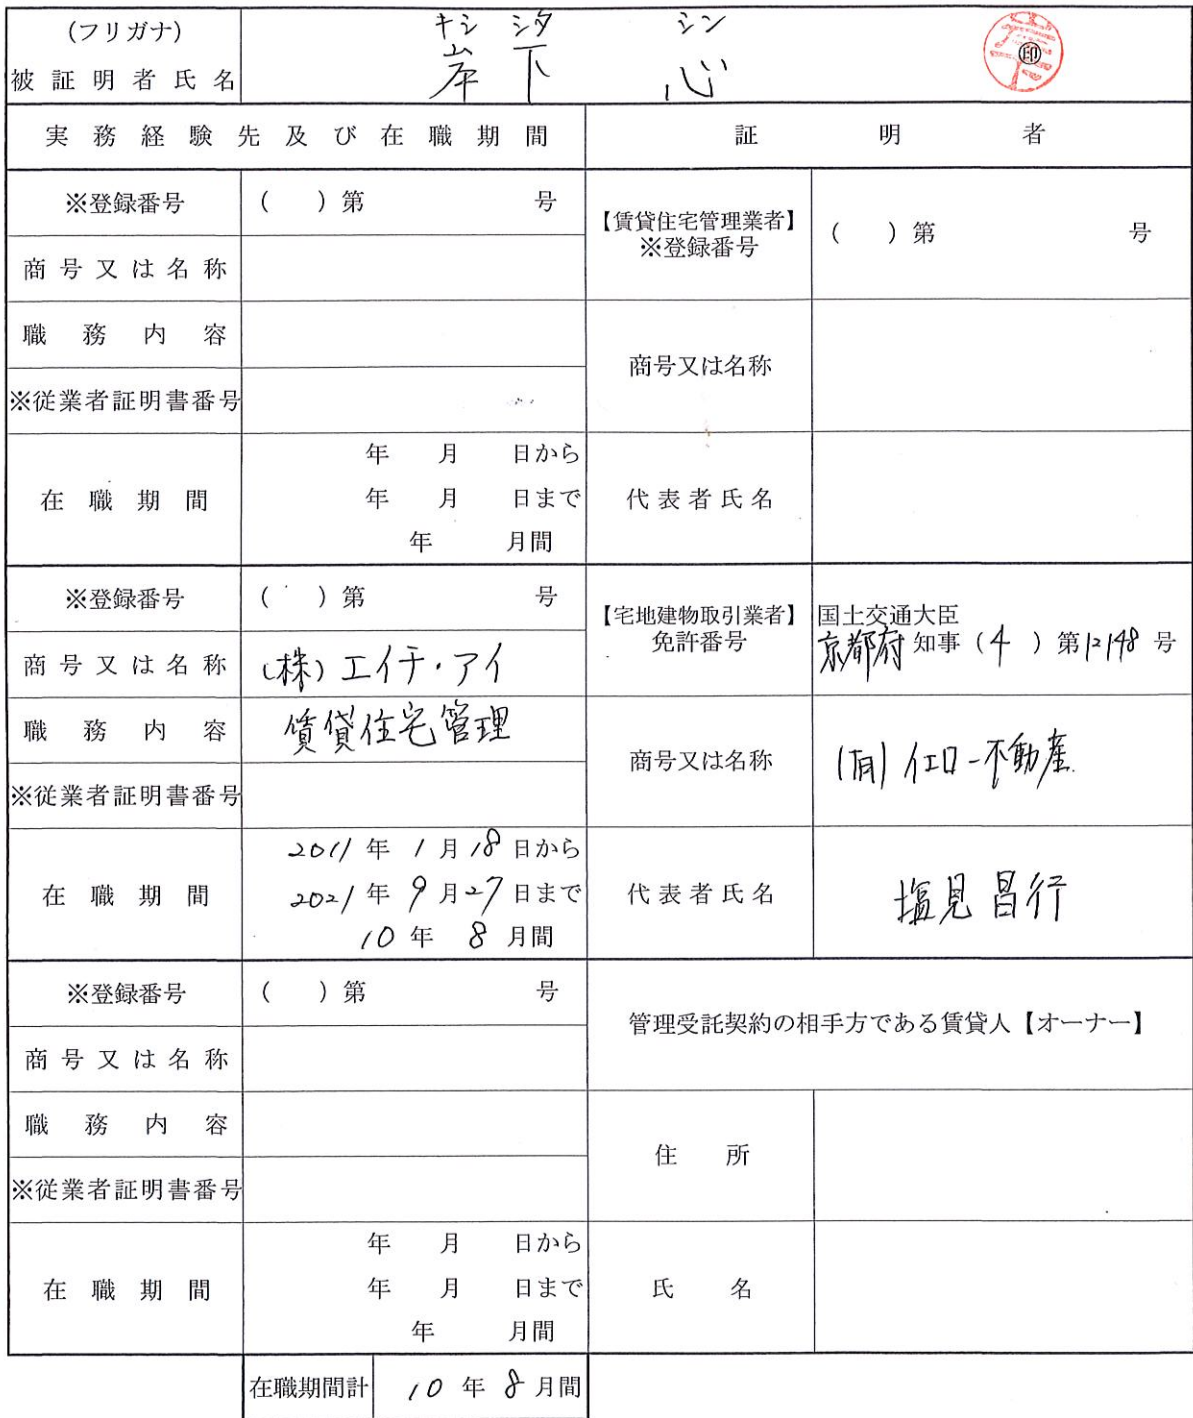 (フリガナ)
キシ シタ シン
被証明者氏名
岸下 心
印
実務経験先及び在職期間
証明者
※登録番号
( )第 号
【賃貸住宅管理業者】
※登録番号
( )第 号
商号又は名称
職務内容
商号又は名称
※従業者証明書番号
在職期間
年 月 日から
年 月 日まで
年 月間
代表者氏名
※登録番号
( )第 号
【宅地建物取引業者】
免許番号
国土交通大臣
京都府 知事 (4) 第12148号
商号又は名称
(株)エイチ・アイ
職務内容
賃貸住宅管理
商号又は名称
(有)イエロー不動産
※従業者証明書番号
在職期間
2011年1月18日から
2021年9月27日まで
10年 8月間
代表者氏名
塩見昌行
※登録番号
( )第 号
管理受託契約の相手方である賃貸人【オーナー】
商号又は名称
職務内容
住所
※従業者証明書番号
在職期間
年 月 日から
年 月 日まで
年 月間
氏名
在職期間計
10年8月間